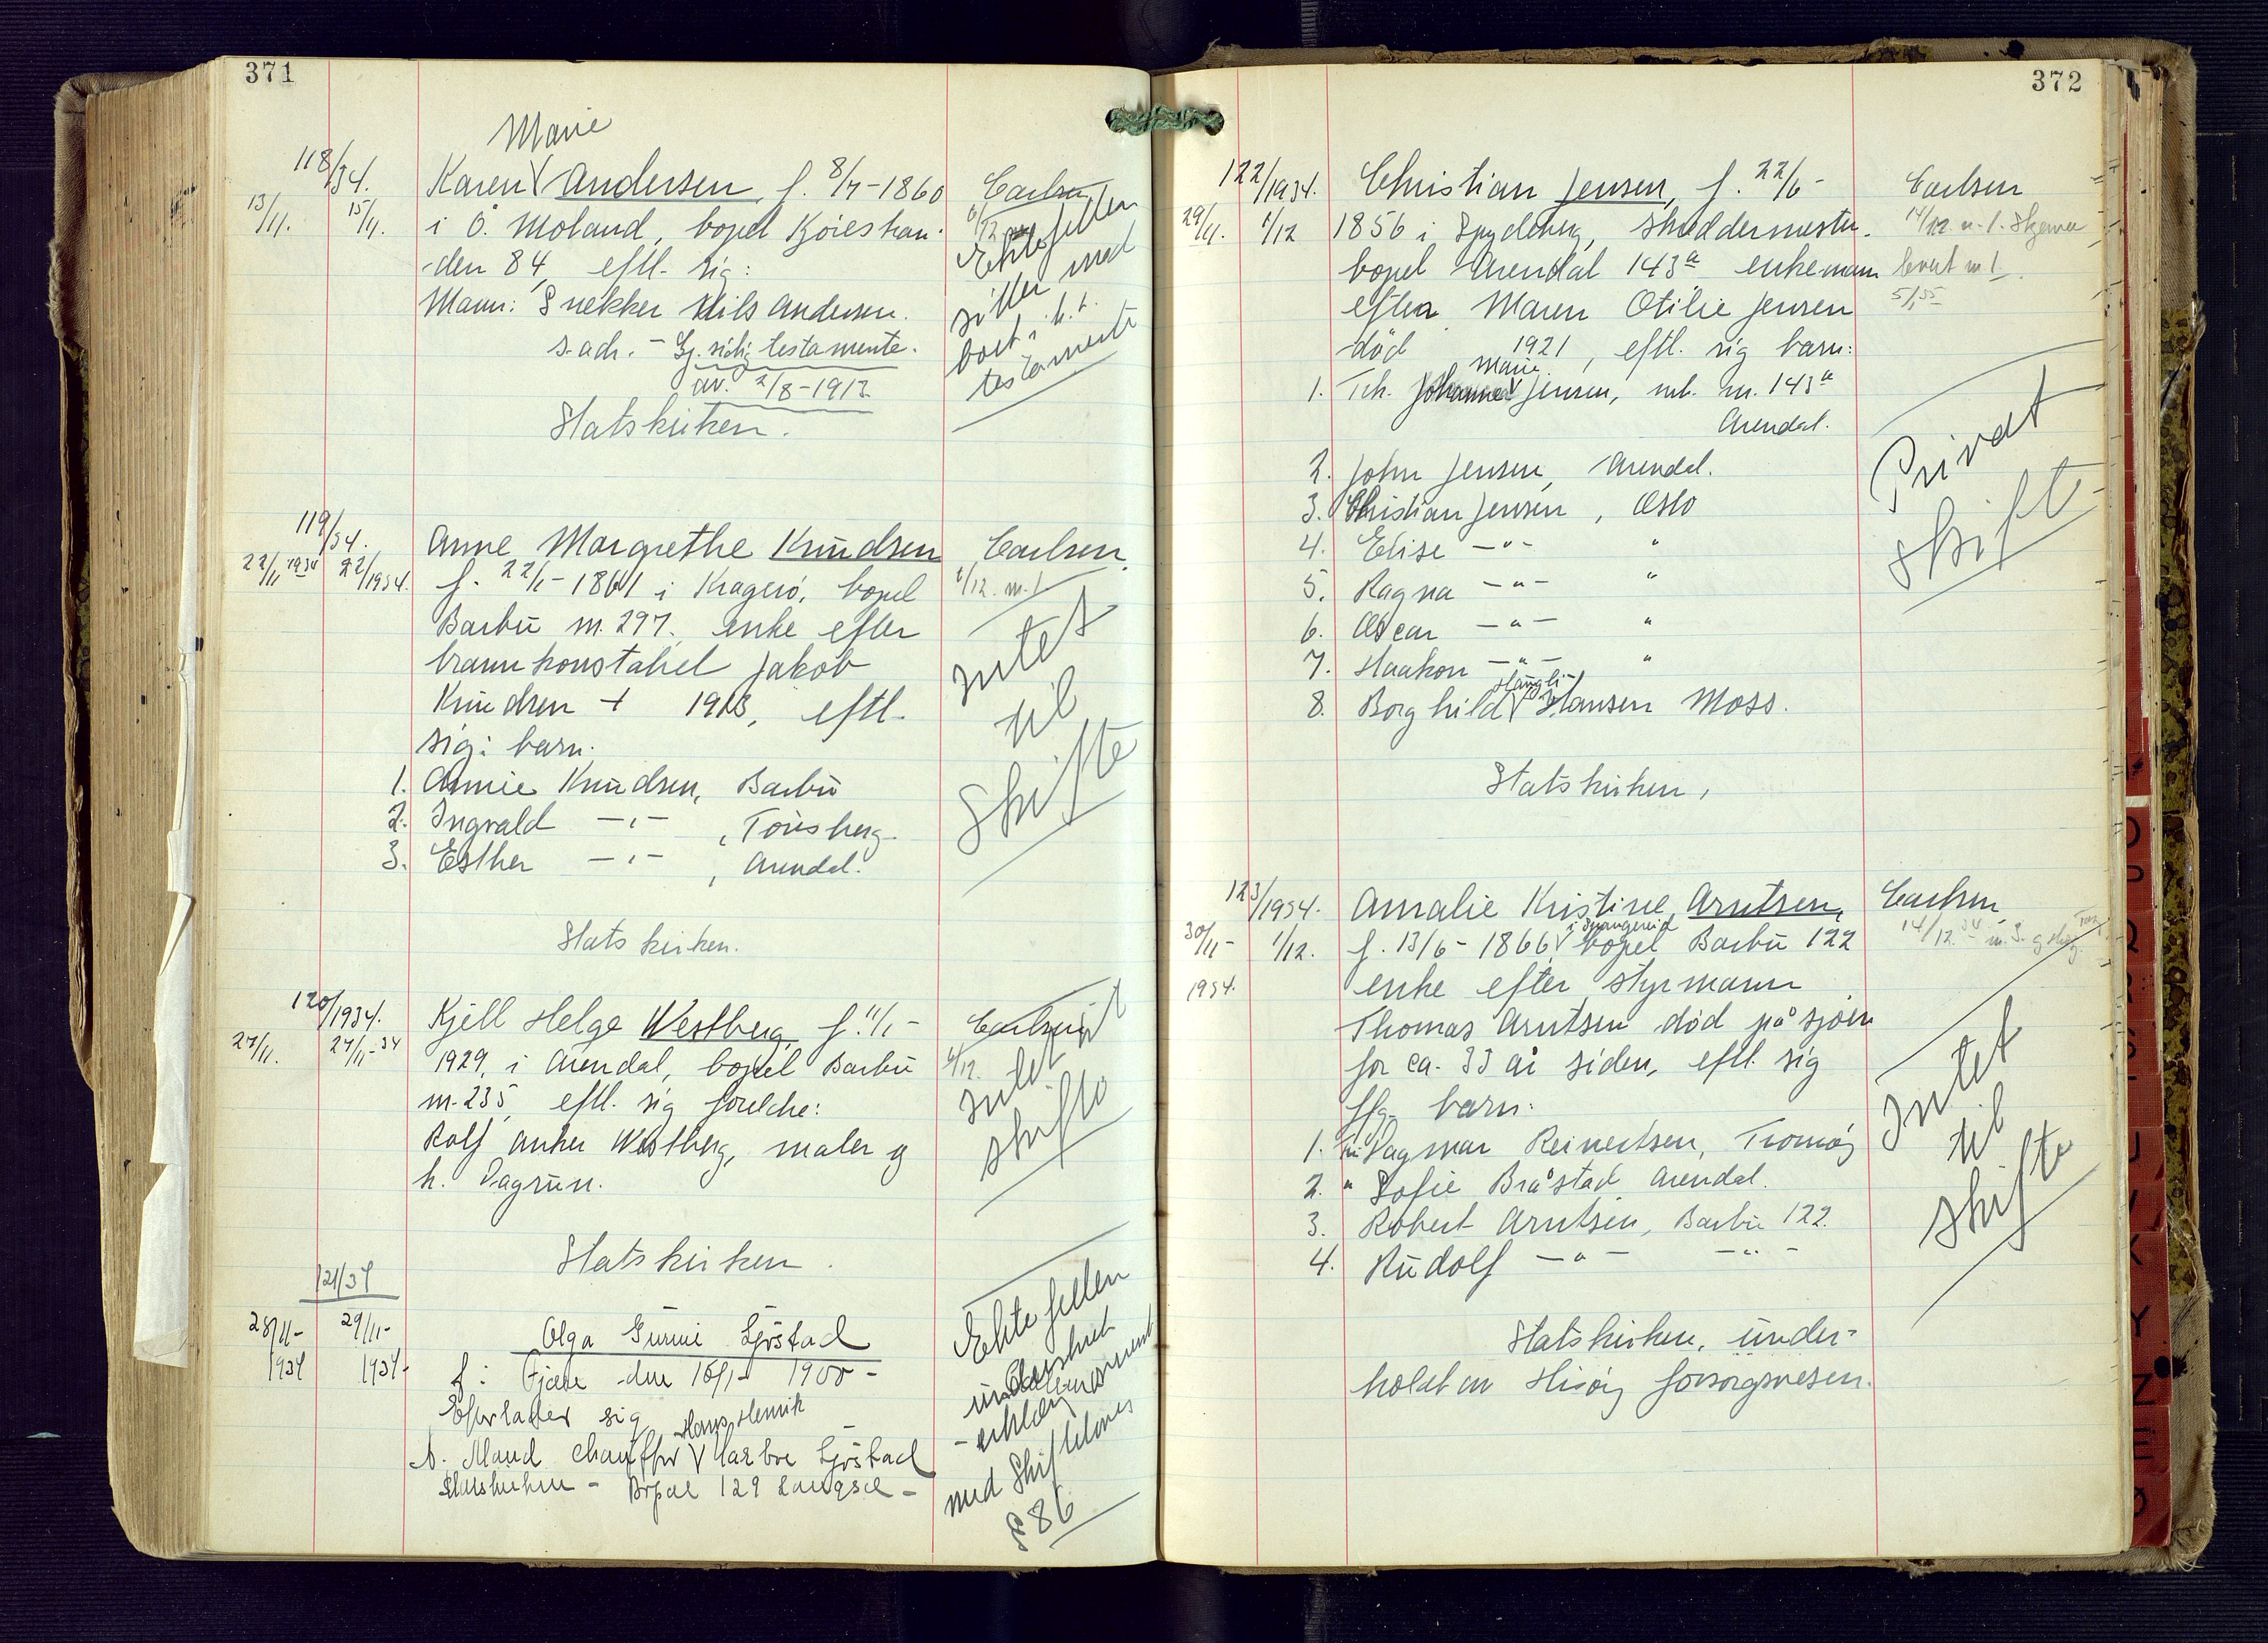 371
Marie
118/34.
Karen V Andersen, f. 8/7-1860
Carlsen
13/11. 15/11.
i Ö. Moland, bopel Kjöiestran-
6/12
den 84, eftl. sig:
Ektefellen
Mann: Snekker Nils Andersen.
sitter med
s.ach. - Gj.sidig testamente.
boet i h.t.
av. 2/8-1912.
testamente
Statskirken.
119/34.
Anne Margrethe Knudsen
Carlsen.
22/11 1934 22/1934.
f. 22/1-1861 i Kragerö, bopel
6/12. m.l.
Barbu nr. 297. enke efter
Intet
brannkonstabel Jakob
til
Knudsen + 1913, eftl.
Skifte
sig: barn.
1. Annie Knudsen, Barbu
2. Ingvald -"- , Tönsberg.
3. Esther -"- , Arendal.
Statskirken.
120/1934.
Kjell Helge Westberg, f. 11/1-
Carlsen
27/11. 27/11-34
1929, i Arendal, bopel Barbu
6/12.
Intet til
nr. 235, eftl. sig foreldre:
skifte
Rolf Anker Westberg, maler og
h. Dagrun.
Statskirken.
121/34
28/11-1934
29/11-1934-
Olga Gunni Sjöstad
f: Fjære den 16/1- 1900-
Efterlader sig
Hans Henrik
1. Mand chauffør V Sjöstad
Statskirken - Bopæl 129 Langsæ -
Ektefellen
underskrevet
erklæring
med Skiftelovens
§ 86
372
122/1934.
Christian Jensen, f. 22/6-
Carlsen
29/11. 1/12
1856 i Spydeberg, skreddermester.
14/12 m.l.
bopel Arendal 143a enkemann
levert m l.
efter Maren Otilie Jensen
5/1 35
död 1921, eftl. sig barn:
Marie
1. Frk. Johanne V Jensen, m.b. nr. 143a
Arendal.
Privat
skifte
2. John Jensen, Arendal.
3. Christian Jensen, Oslo
4. Elise -"- "
5. Ragna -"- "
6. Oscar -"- "
7. Haakon -"- "
Haugli-
8. Borghild V Hansen Moss.
Statskirken,
123/1934.
Amalie Kristine Arntsen,
Carlsen
i Spangereid
30/11-1934. 1/12.
f. 13/6-1866 V bopel Barbu 122
14/12 34
enke efter styrmann
Thomas Arntsen död på sjöen
for ca. 33 år siden, eftl. sig
Intet
flg. barn:
til
1. Fru Dagmar Reinertsen, Tromöy
skifte
2. " Sofie Bråstad Arendal.
3. Robert Arntsen, Barbu 122.
4. Rudolf -"- -"-
Statskirken, under-
holdt av Hisöy forsorgsvesen.